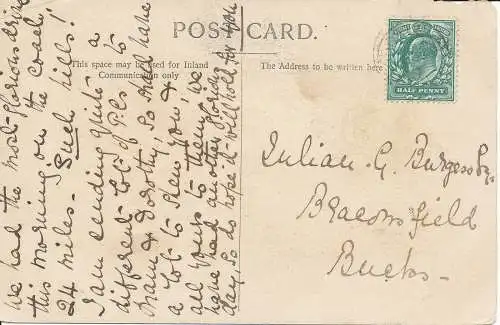 POST CARD.
This space may be used for Inland
Communication only
The Address to be written here
HALF PENNY
Julian G. Burgess Esq.
Beaconsfield
Bucks.
we had the most glorious drive
this morning on the coach
24 miles. Such hills!
I am sending quite a
different lot of P.Cs to
Mam & Dorothy, so shall have
a lot to show you, &
all yours to them. We
have had another glorious
day, so do hope it will hold for you